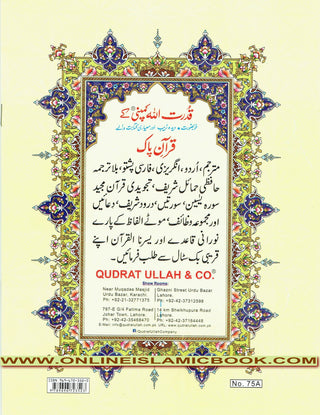 قدرت اللہ کمپنی کے
خوبصورت، دیدہ زیب اور معیاری طباعت والے
قرآن پاک
مترجم، اُردو، انگریزی، فارسی، پشتو، بلا ترجمہ
حافظی حمائل شریف، تجویدی قرآن مجید
سورہ یٰسین، سورتیں، درود شریف، دعائیں
اور مجموعہ وظائف، موٹے الفاظ کے پارے
نورانی قاعدے اور یسرنا القرآن اپنے
قریبی بک سٹال سے طلب فرمائیں۔
QUDRAT ULLAH & CO.
Show Rooms:
Near Muqadas Masjid
Urdu Bazar, Karachi.
Ph: +92-21-32771375
Ghazni Street Urdu Bazar
Lahore.
Ph: +92-42-37312598
767-E Gill Fatima Road
Johar Town, Lahore.
Ph: +92-42-35468470
14 km Sheikhupura Road
Lahore.
Ph: +92-42-37164448
E-Mail: info@qudratullah.com.pk URL: www.qudratullah.com.pk
QudratUllahCompany
WWW.ONLINEISLAMICBOOK.COM
No. 75A